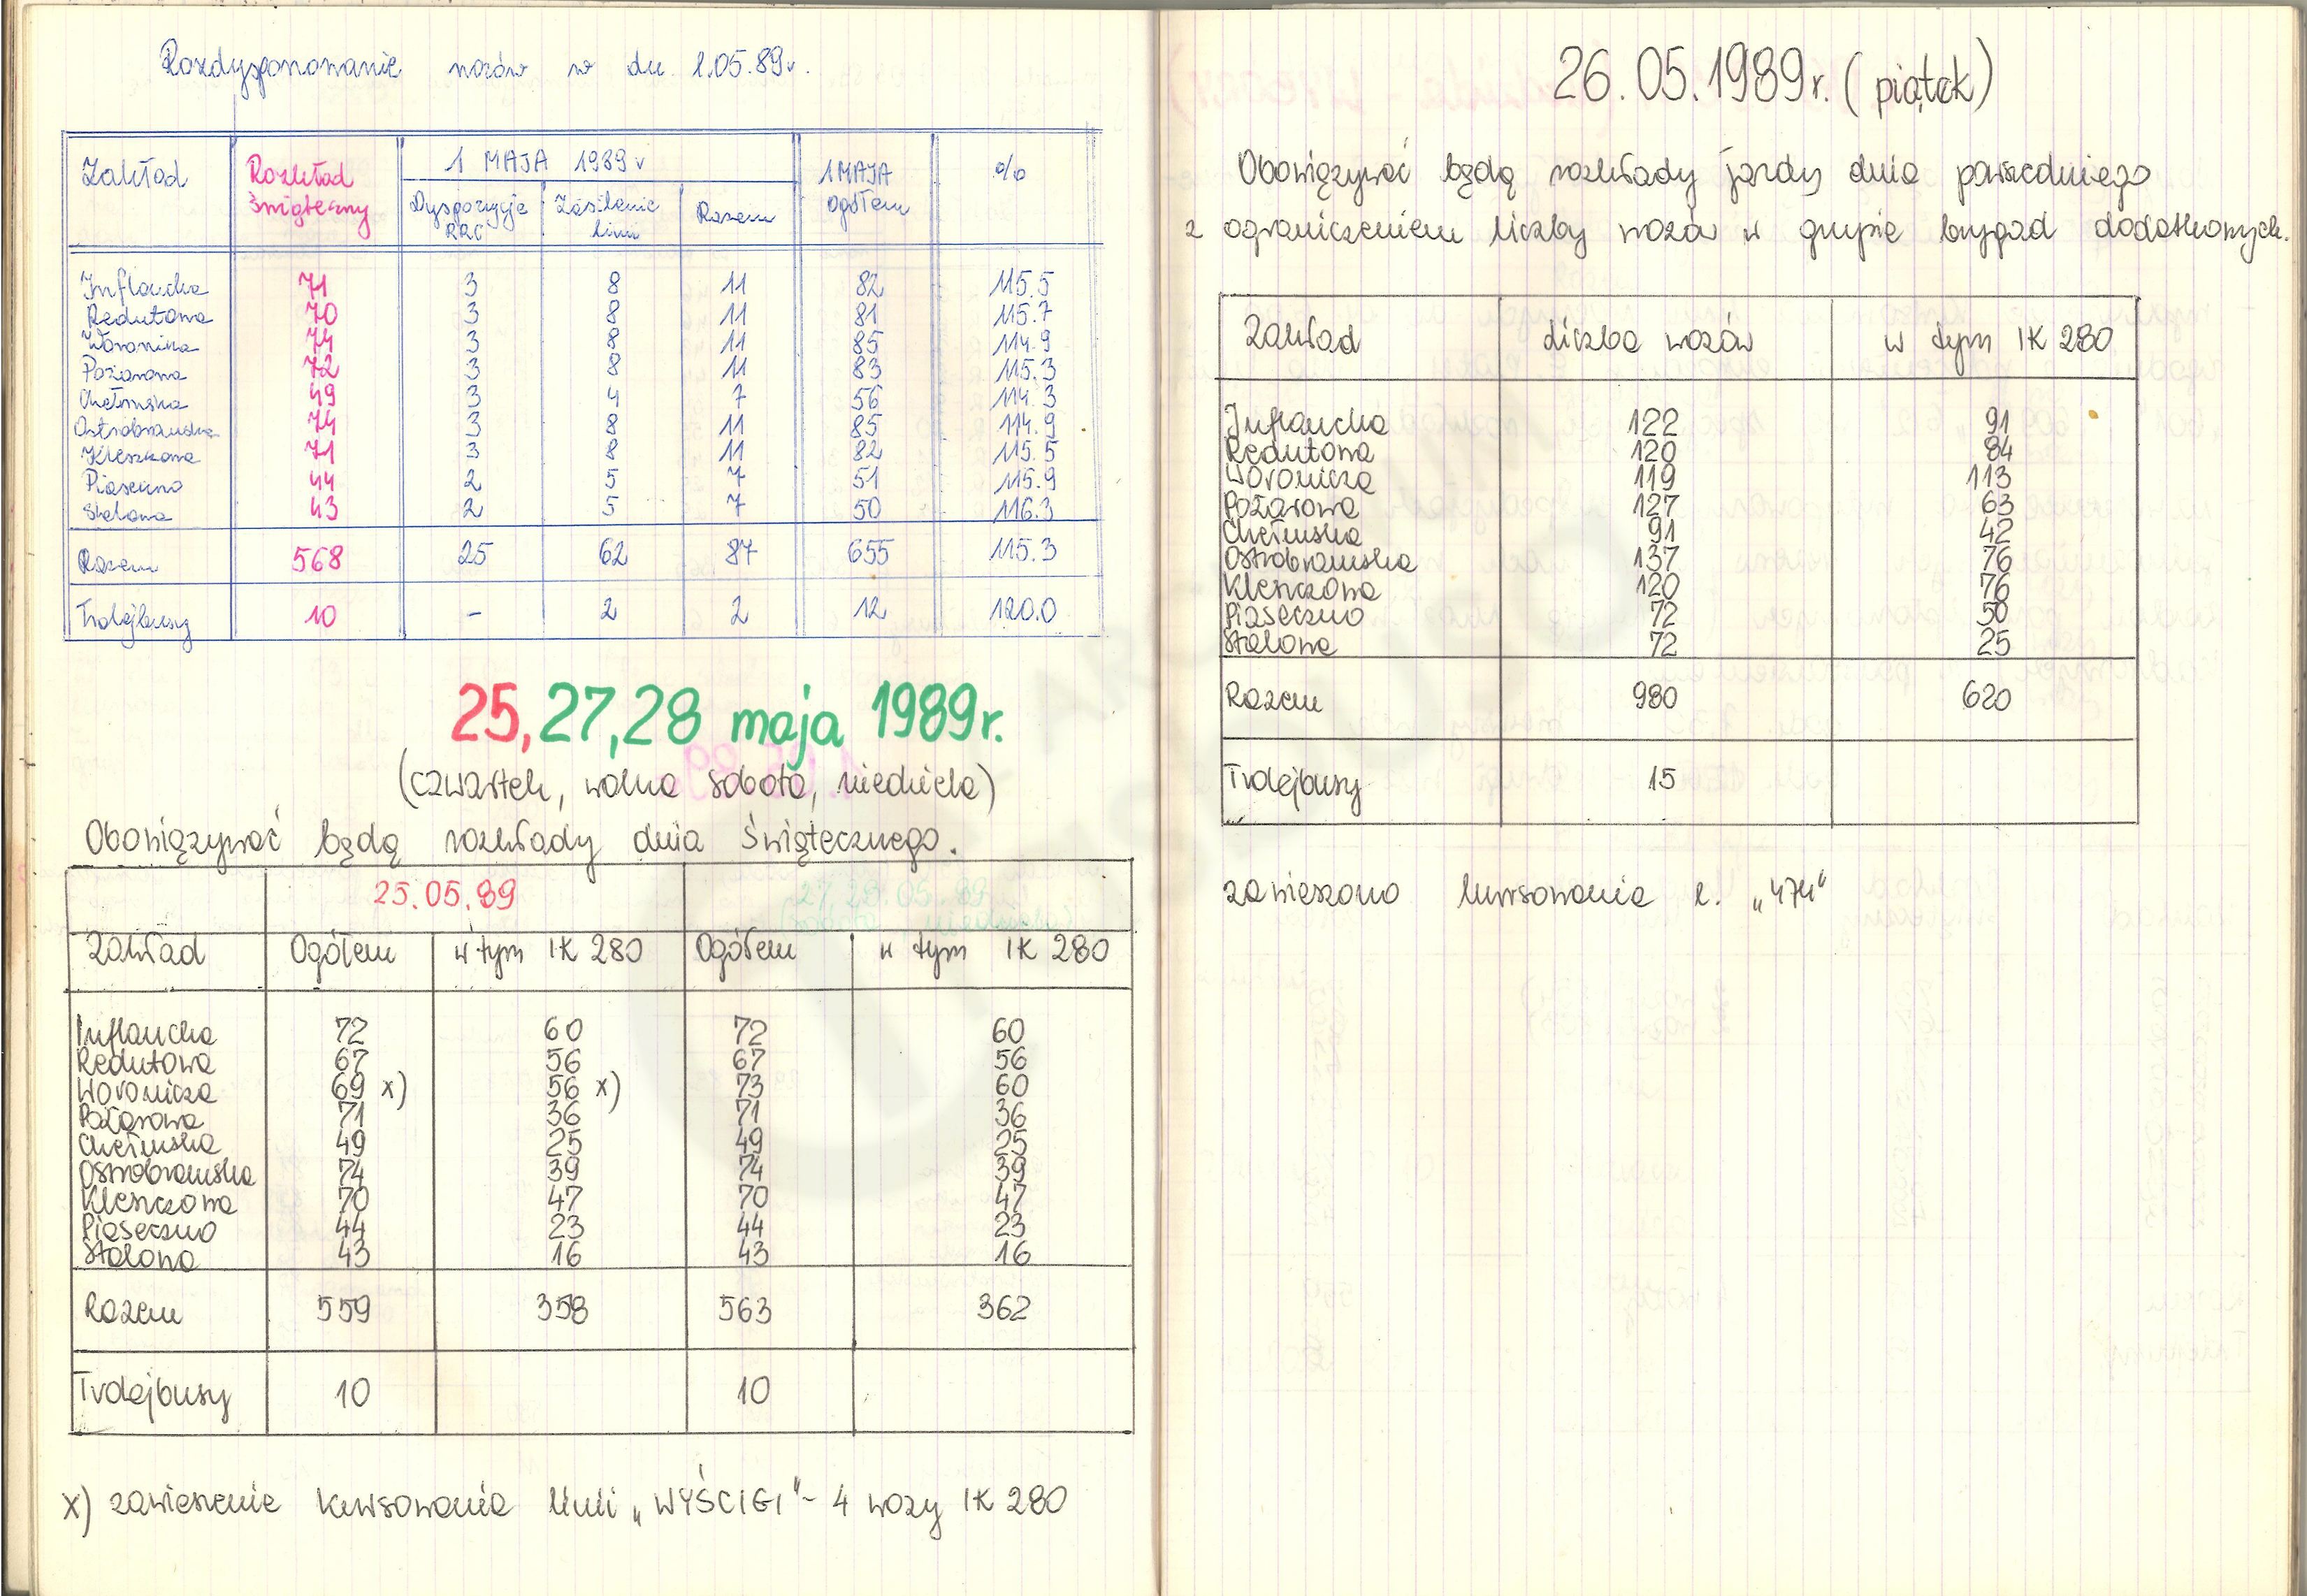 Rozdysponowanie wozów w dn. 1.05.89r.
Zakład Rozkład świąteczny 1 MAJA 1989r 1 MAJA ogółem %
Dyspozycje RRC Zasilanie linii Razem
Inflancka 71 3 8 11 82 115.5
Redutowa 70 3 8 11 81 115.7
Woronicza 74 3 8 11 85 114.9
Pożarowa 72 3 8 11 83 115.3
Chełmska 49 3 4 7 56 114.3
Ostrobramska 74 3 8 11 85 114.9
Kleszkowa 71 3 8 11 82 115.5
Piaseczno 44 2 5 7 51 115.9
Stalowa 43 2 5 7 50 116.3
Razem 568 25 62 87 655 115.3
Trolejbusy 10 - 2 2 12 120.0
25, 27, 28 maja 1989r.
(czwartek, wolna sobota, niedziela)
Obowiązywać będą rozkłady dnia świątecznego.
25.05.89 27,28.05.89
(sobota, niedziela)
Zakład Ogółem w tym IK 280 Ogółem w tym IK 280
Inflancka 72 60 72 60
Redutowa 67 56 67 56
Woronicza 69 x) 56 x) 73 60
Pożarowa 71 36 71 36
Chełmska 49 25 49 25
Ostrobramska 74 39 74 39
Kleszczowa 70 47 70 47
Piaseczno 44 23 44 23
Stalowa 43 16 43 16
Razem 559 358 563 362
Trolejbusy 10 10
x) zawieszenie kursowania linii „WYŚCIGI" - 4 wozy IK 280
26.05.1989r. (piątek)
Obowiązywać będą rozkłady jazdy dnia powszedniego
z ograniczeniem liczby wozów w grupie brygad dodatkowych.
Zakład Liczba wozów w tym IK 280
Inflancka 122 91
Redutowa 120 84
Woronicza 119 113
Pożarowa 127 63
Chełmska 91 42
Ostrobramska 137 76
Kleszczowa 120 76
Piaseczno 72 50
Stalowa 72 25
Razem 980 620
Trolejbusy 15
zawieszono kursowanie l. „474"